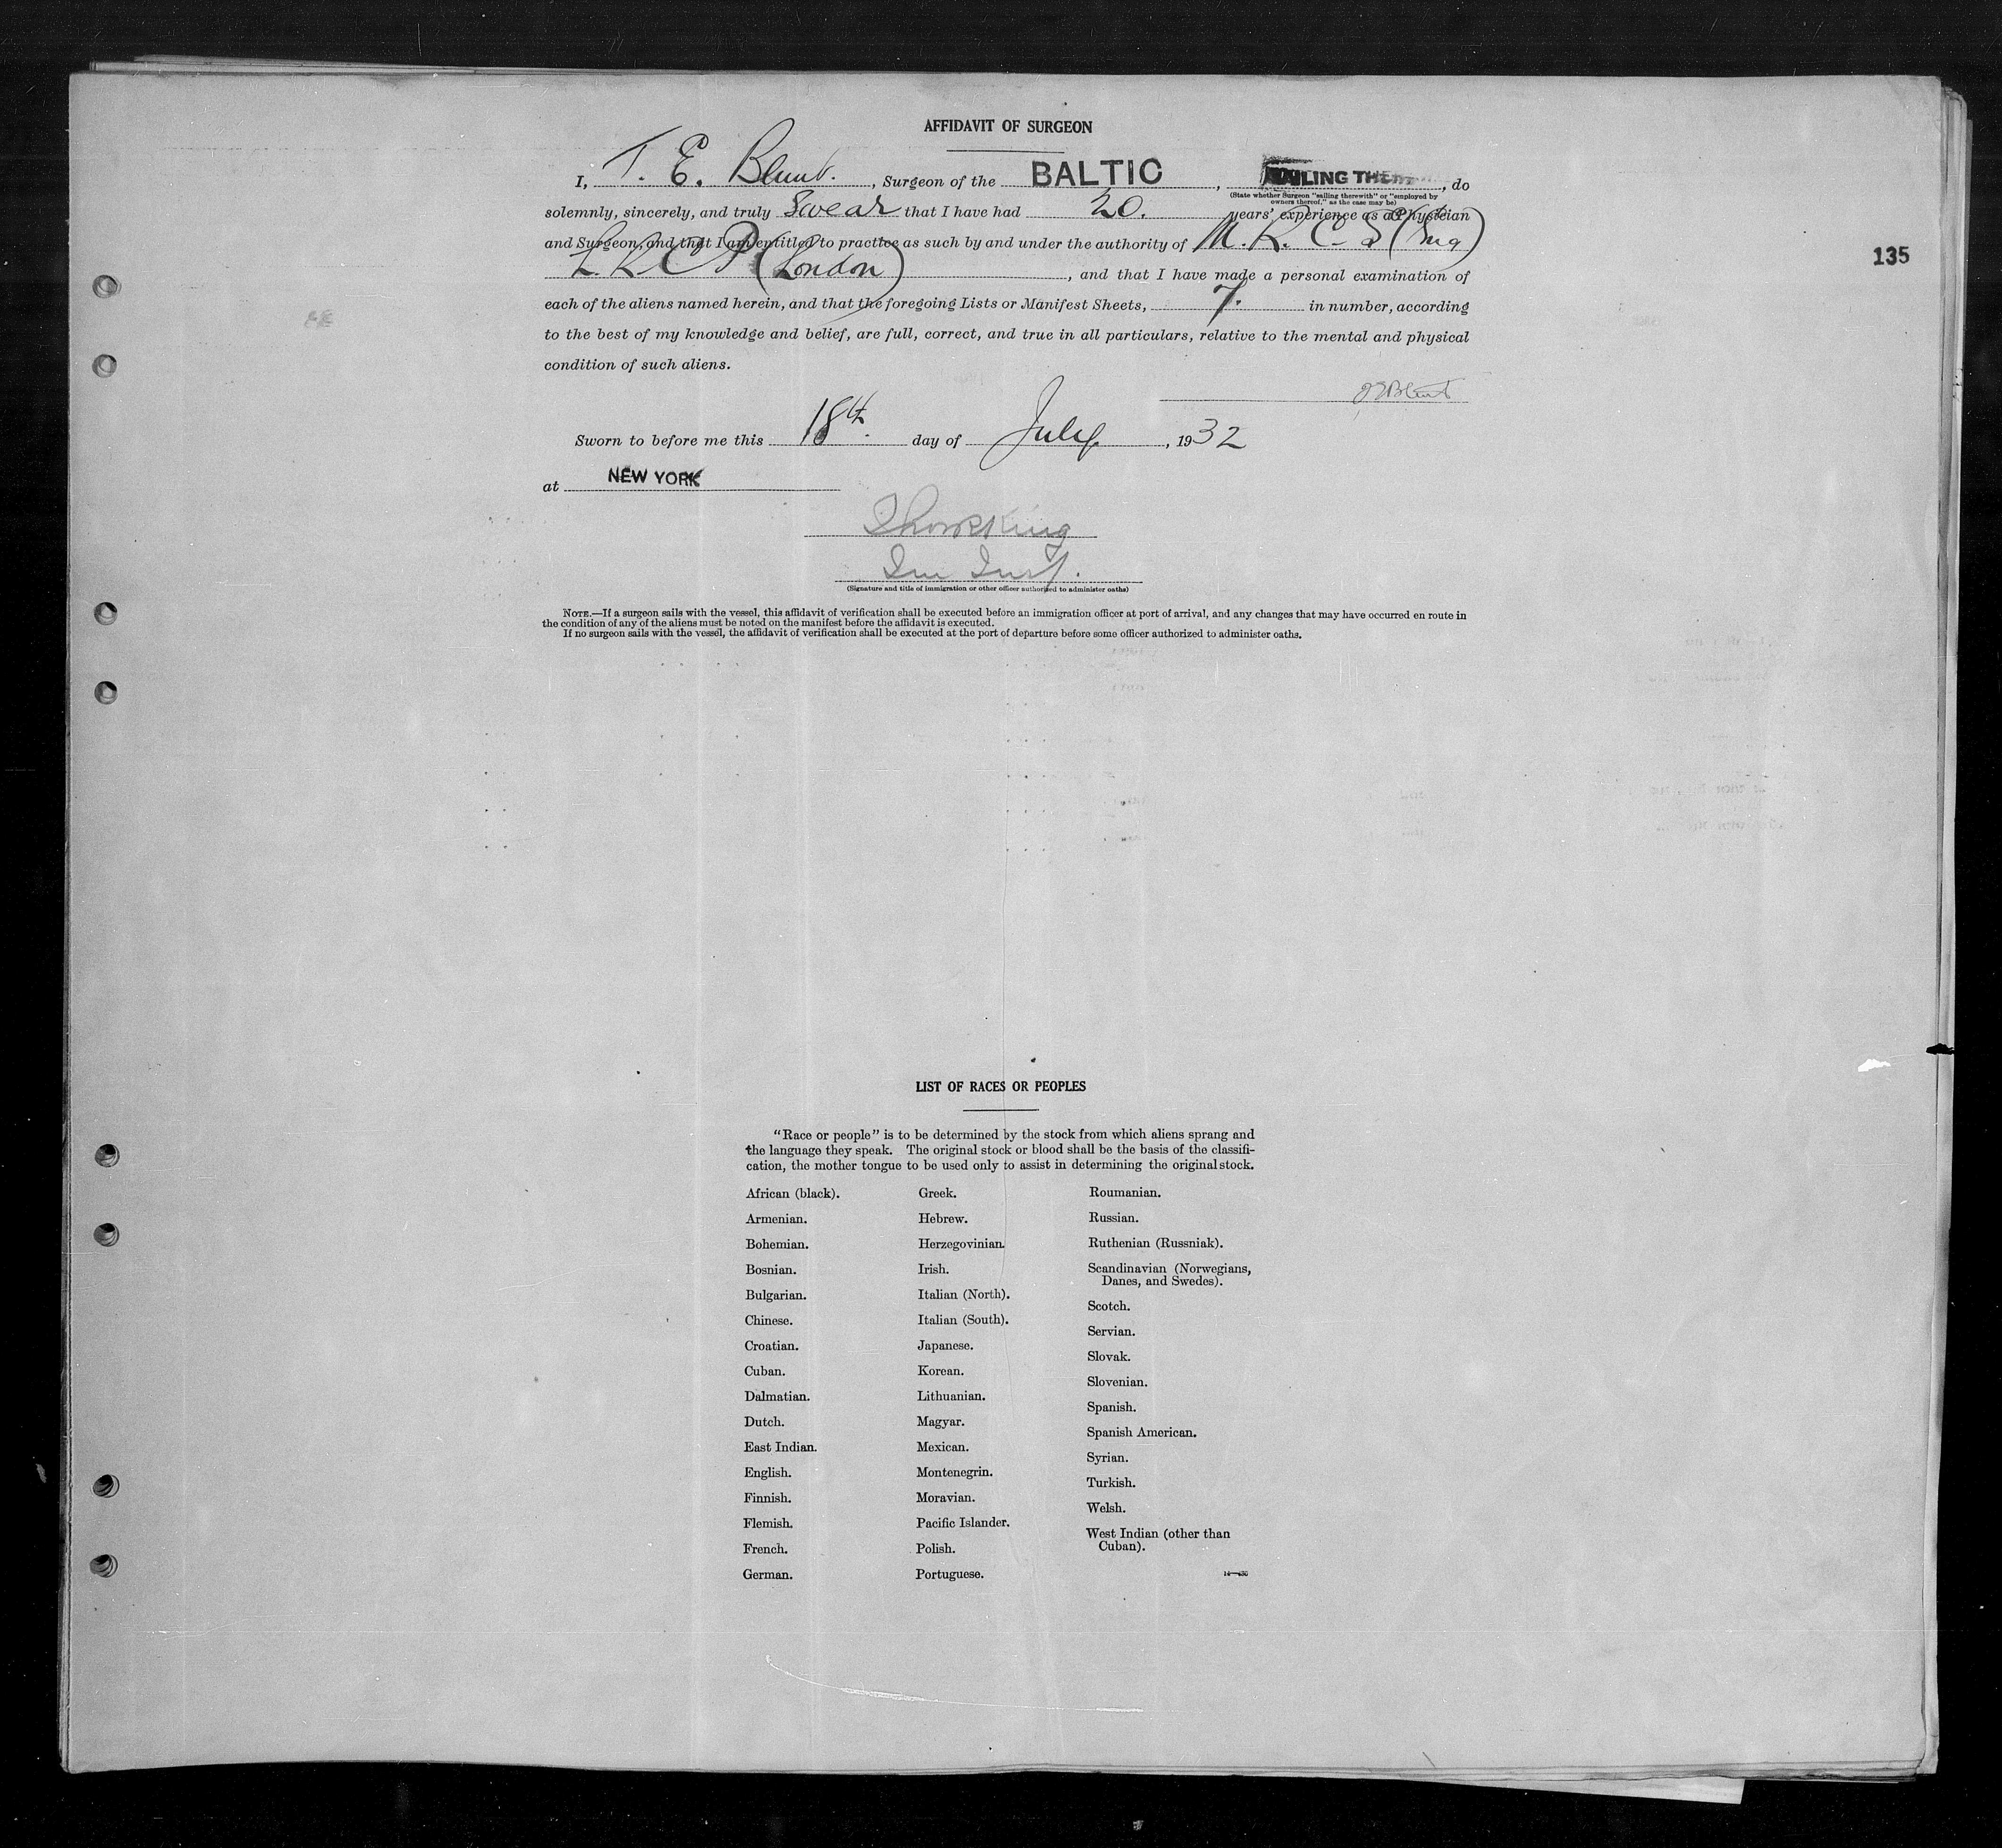 AFFIDAVIT OF SURGEON
I, T. E. Blunt., Surgeon of the BALTIC, SAILING THEREWITH, do
(State whether Surgeon "sailing therewith" or "employed by
owners thereof," as the case may be)
solemnly, sincerely, and truly Swear that I have had 20. years' experience as a Physician
and Surgeon, and that I am entitled to practice as such by and under the authority of M. R. C. S (Eng)
L. R C P (London), and that I have made a personal examination of
each of the aliens named herein, and that the foregoing Lists or Manifest Sheets, 7. in number, according
to the best of my knowledge and belief, are full, correct, and true in all particulars, relative to the mental and physical
condition of such aliens.
TEBlunt
Sworn to before me this 18th. day of July, 1932
at NEW YORK
Im Insp.
(Signature and title of immigration or other officer authorized to administer oaths)
NOTE.—If a surgeon sails with the vessel, this affidavit of verification shall be executed before an immigration officer at port of arrival, and any changes that may have occurred en route in
the condition of any of the aliens must be noted on the manifest before the affidavit is executed.
If no surgeon sails with the vessel, the affidavit of verification shall be executed at the port of departure before some officer authorized to administer oaths.
135
LIST OF RACES OR PEOPLES
"Race or people" is to be determined by the stock from which aliens sprang and
the language they speak. The original stock or blood shall be the basis of the classifi-
cation, the mother tongue to be used only to assist in determining the original stock.
African (black).
Armenian.
Bohemian.
Bosnian.
Bulgarian.
Chinese.
Croatian.
Cuban.
Dalmatian.
Dutch.
East Indian.
English.
Finnish.
Flemish.
French.
German.
Greek.
Hebrew.
Herzegovinian.
Irish.
Italian (North).
Italian (South).
Japanese.
Korean.
Lithuanian.
Magyar.
Mexican.
Montenegrin.
Moravian.
Pacific Islander.
Polish.
Portuguese.
Roumanian.
Russian.
Ruthenian (Russniak).
Scandinavian (Norwegians,
Danes, and Swedes).
Scotch.
Servian.
Slovak.
Slovenian.
Spanish.
Spanish American.
Syrian.
Turkish.
Welsh.
West Indian (other than
Cuban).